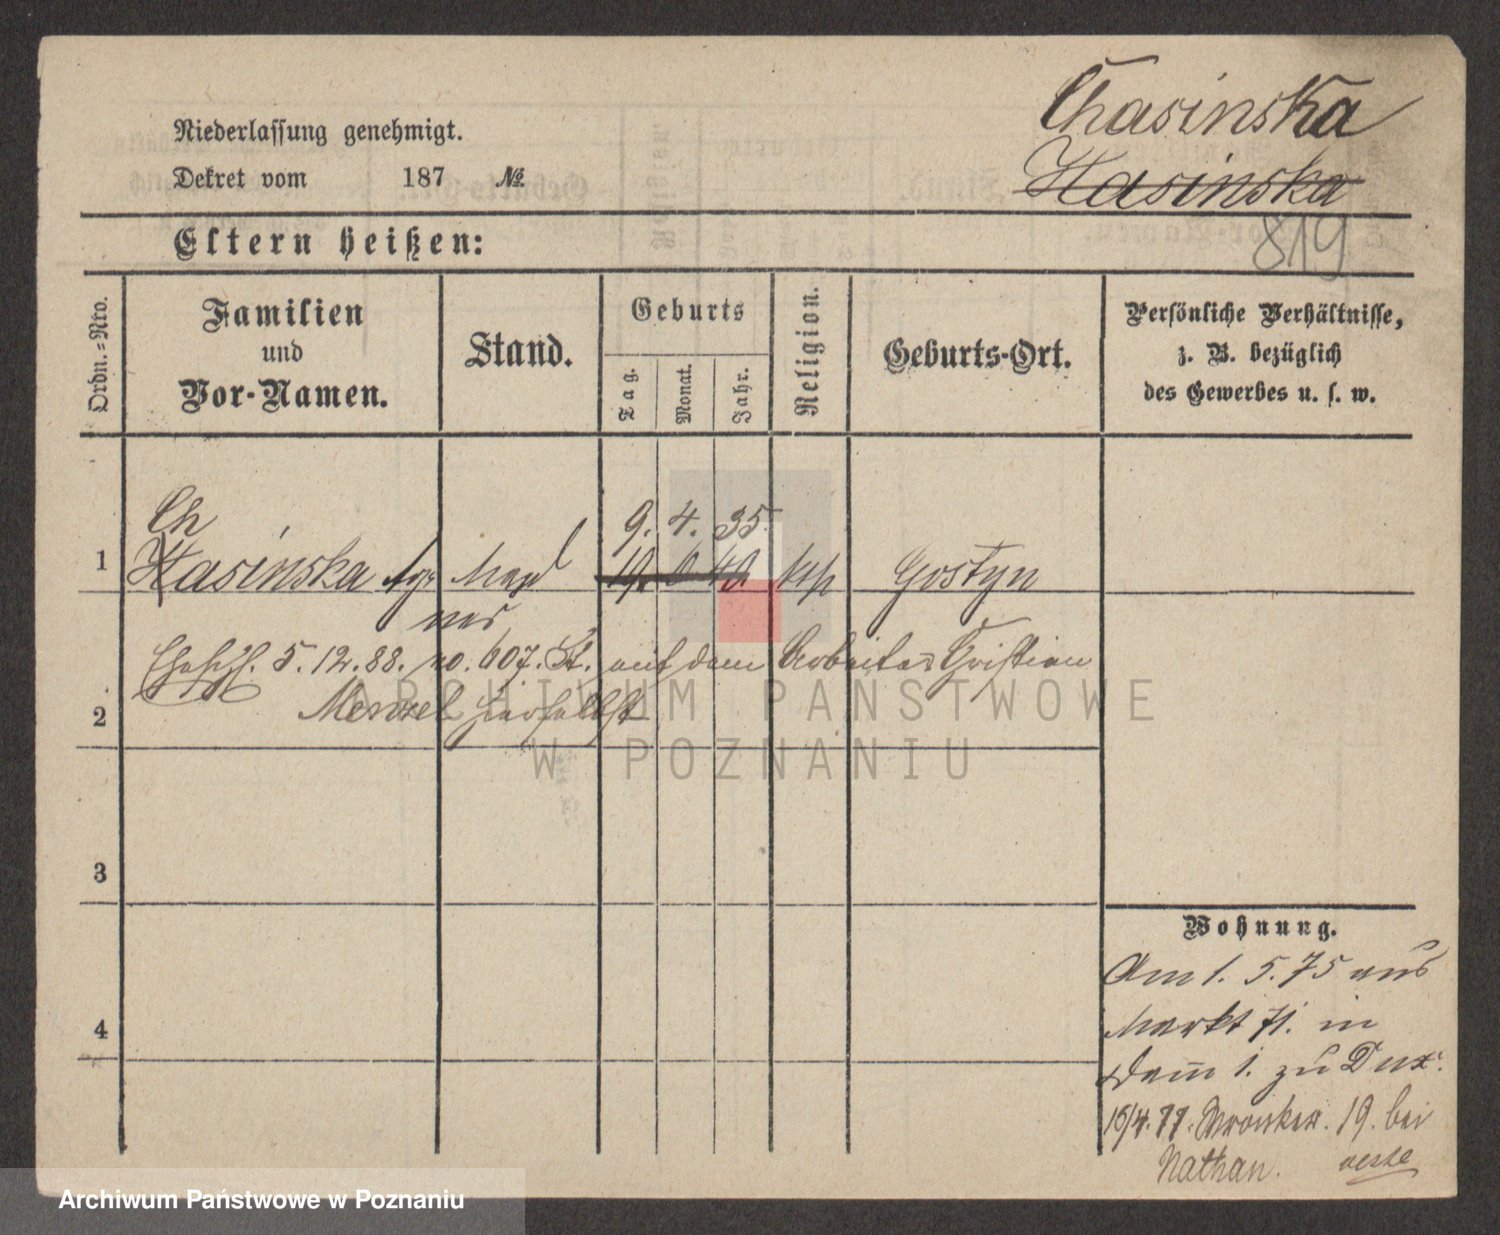 Chasinska
Niederlassung genehmigt.
Hasinska
Dekret vom 187 №
819
Eltern heißen:
Ordn.-Nro.
Familien
und
Vor-Namen.
Stand.
Geburts
Tag.
Monat.
Jahr.
Religion.
Geburts-Ort.
Persönliche Verhältnisse,
z. B. bezüglich
des Gewerbes u. s. w.
Ch
9. 4. 35.
1 Hasinska Magd kth Gostyn
5. 12. 88. no. 607. St. mit dem Arbeiter Christian
2 Menzel hierselbst
3
4
Wohnung.
Am 1. 5. 75 aus
Markt 71. in
Damm 1. zu Dux.
15/4. 77. Wronker. 19. bei
Nathan.
ARCHIWUM PAŃSTWOWE
W POZNANIU
Archiwum Państwowe w Poznaniu